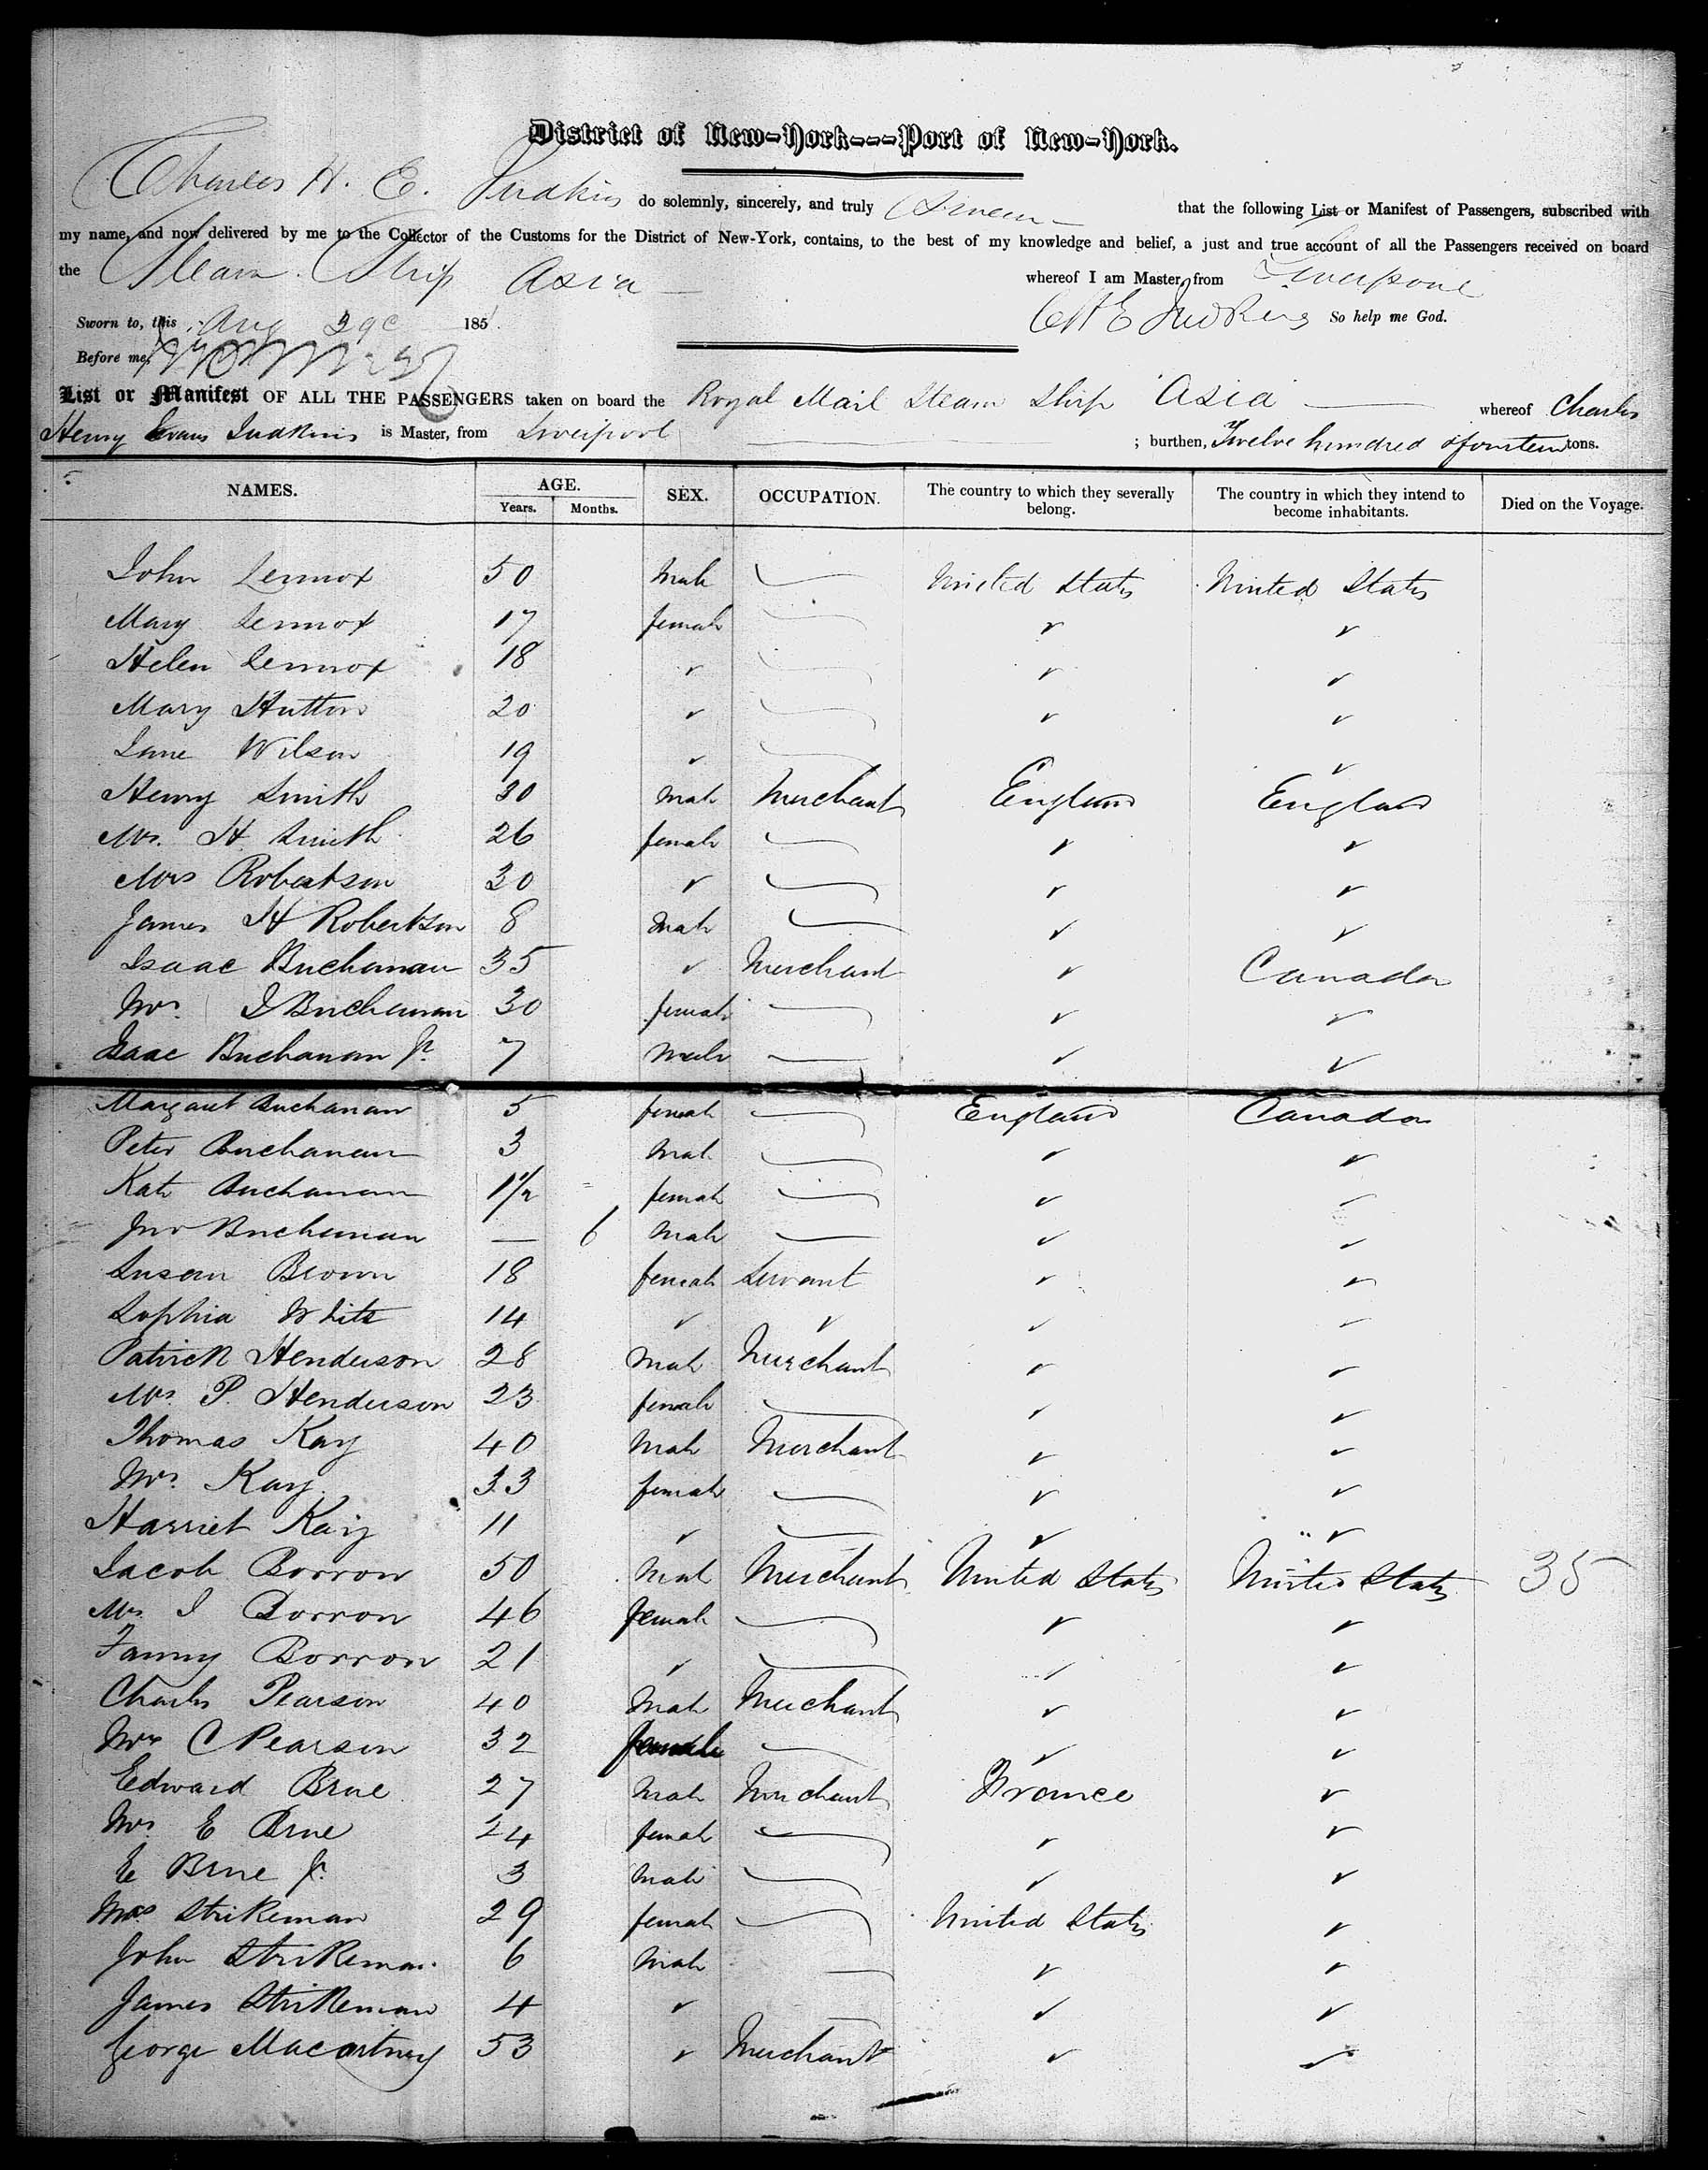 District of New-York---Port of New-York.
Charles H. E. Judkins do solemnly, sincerely, and truly Swear that the following List or Manifest of Passengers, subscribed with
my name, and now delivered by me to the Collector of the Customs for the District of New-York, contains, to the best of my knowledge and belief, a just and true account of all the Passengers received on board
the Steam Ship Asia whereof I am Master, from Liverpool
Sworn to, this Aug 185 CHE Judkins So help me God.
Before me,
List or Manifest OF ALL THE PASSENGERS taken on board the Royal Mail Steam Ship Asia whereof Charles
Henry Evans Judkins is Master, from Liverpool ; burthen, Twelve hundred & fourteen tons.
NAMES. AGE. Years. Months. SEX. OCCUPATION. The country to which they severally belong. The country in which they intend to become inhabitants. Died on the Voyage.
John Lennox 50 Male United States United States
Mary Lennox 17 female ✓ ✓
Helen Lennox 18 ✓ ✓ ✓
Mary Hutton 20 ✓ ✓ ✓
Jane Wilson 19 ✓ ✓
Henry Smith 30 Male Merchant England England
Mrs. H. Smith 26 female ✓ ✓
Mrs Robertson 30 ✓ ✓ ✓
James H Robertson 8 Male ✓ ✓
Isaac Buchanan 35 ✓ Merchant ✓ Canada
Mrs. I Buchanan 30 female ✓ ✓
Isaac Buchanan Jr. 7 Male ✓ ✓
Margaret Buchanan 5 female England Canada
Peter Buchanan 3 Male ✓ ✓
Kate Buchanan 1½ female ✓ ✓
Jno Buchanan — 6 Male ✓ ✓
Susan Brown 18 female Servant ✓ ✓
Sophia White 14 ✓ ✓ ✓ ✓
Patrick Henderson 28 Male Merchant ✓ ✓
Mrs. P. Henderson 23 female ✓ ✓
Thomas Kay 40 Male Merchant ✓ ✓
Mrs. Kay 33 female ✓ ✓
Harriet Kay 11 ✓ ✓ ✓
Jacob Borron 50 Male Merchant United States United States 35
Mrs J Borron 46 female ✓ ✓
Fanny Borron 21 ✓ ✓ ✓
Charles Pearson 40 Male Merchant ✓ ✓
Mrs C Pearson 32 female ✓ ✓
Edward Brue 27 Male Merchant France ✓
Mrs E Brue 24 female ✓ ✓
E Brue Jr. 3 Male ✓ ✓
Mrs Strikeman 29 female United States ✓
John Strikeman 6 Male ✓ ✓
James Strikeman 4 ✓ ✓ ✓
George Macartney 53 ✓ Merchant ✓ ✓